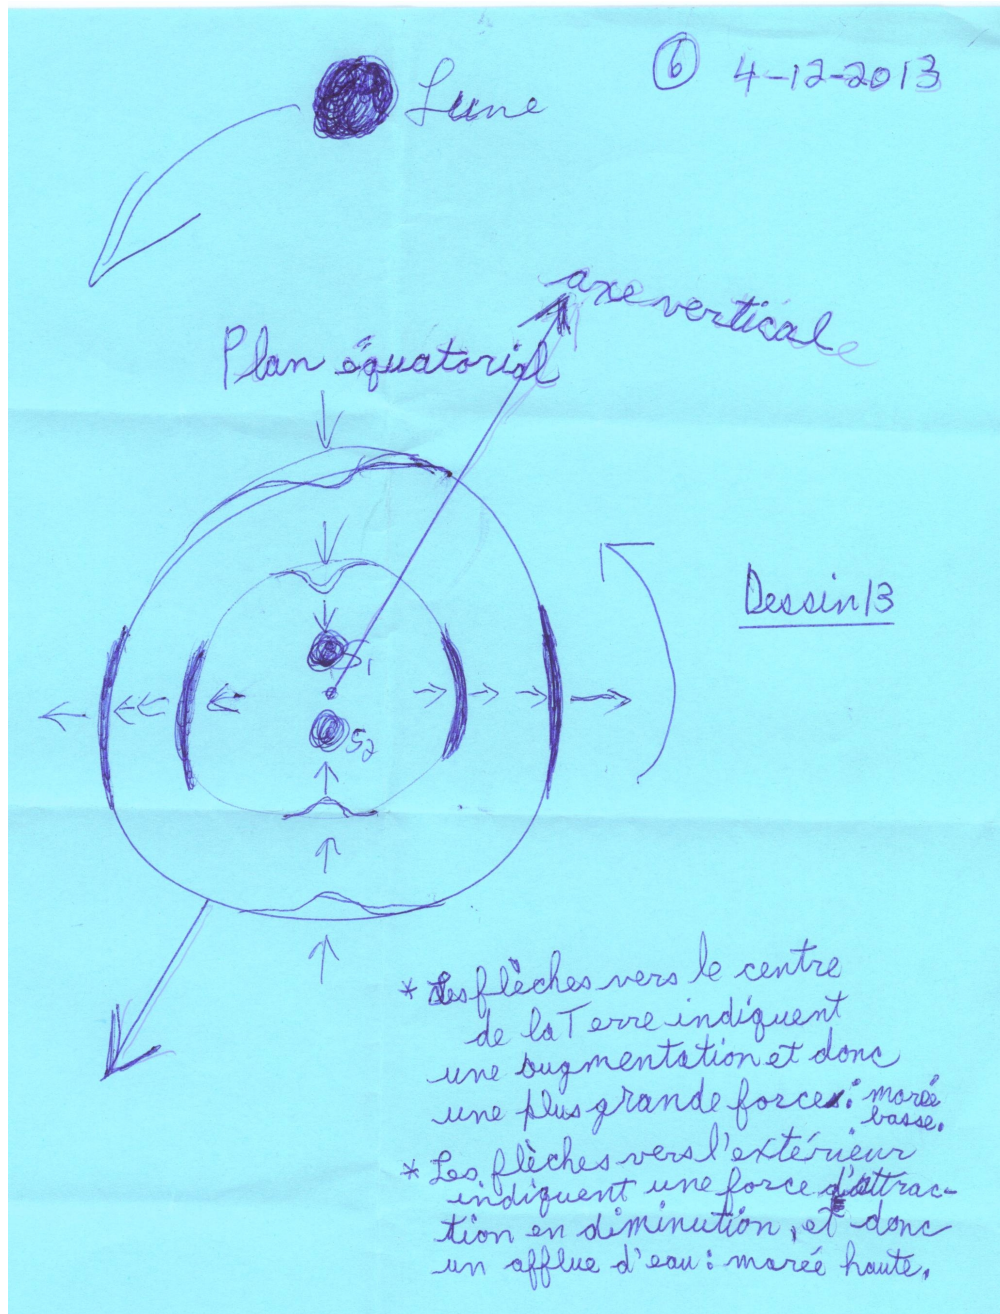 ⑥ 4-12-2013
Lune
axe verticale
Plan équatorial
Dessin 13
S1
S2
* Les flèches vers le centre
de la Terre indiquent
une augmentation et donc
une plus grande force: marée
basse.
* Les flèches vers l'extérieur
indiquent une force d'attrac-
tion en diminution, et donc
un afflue d'eau: marée haute.